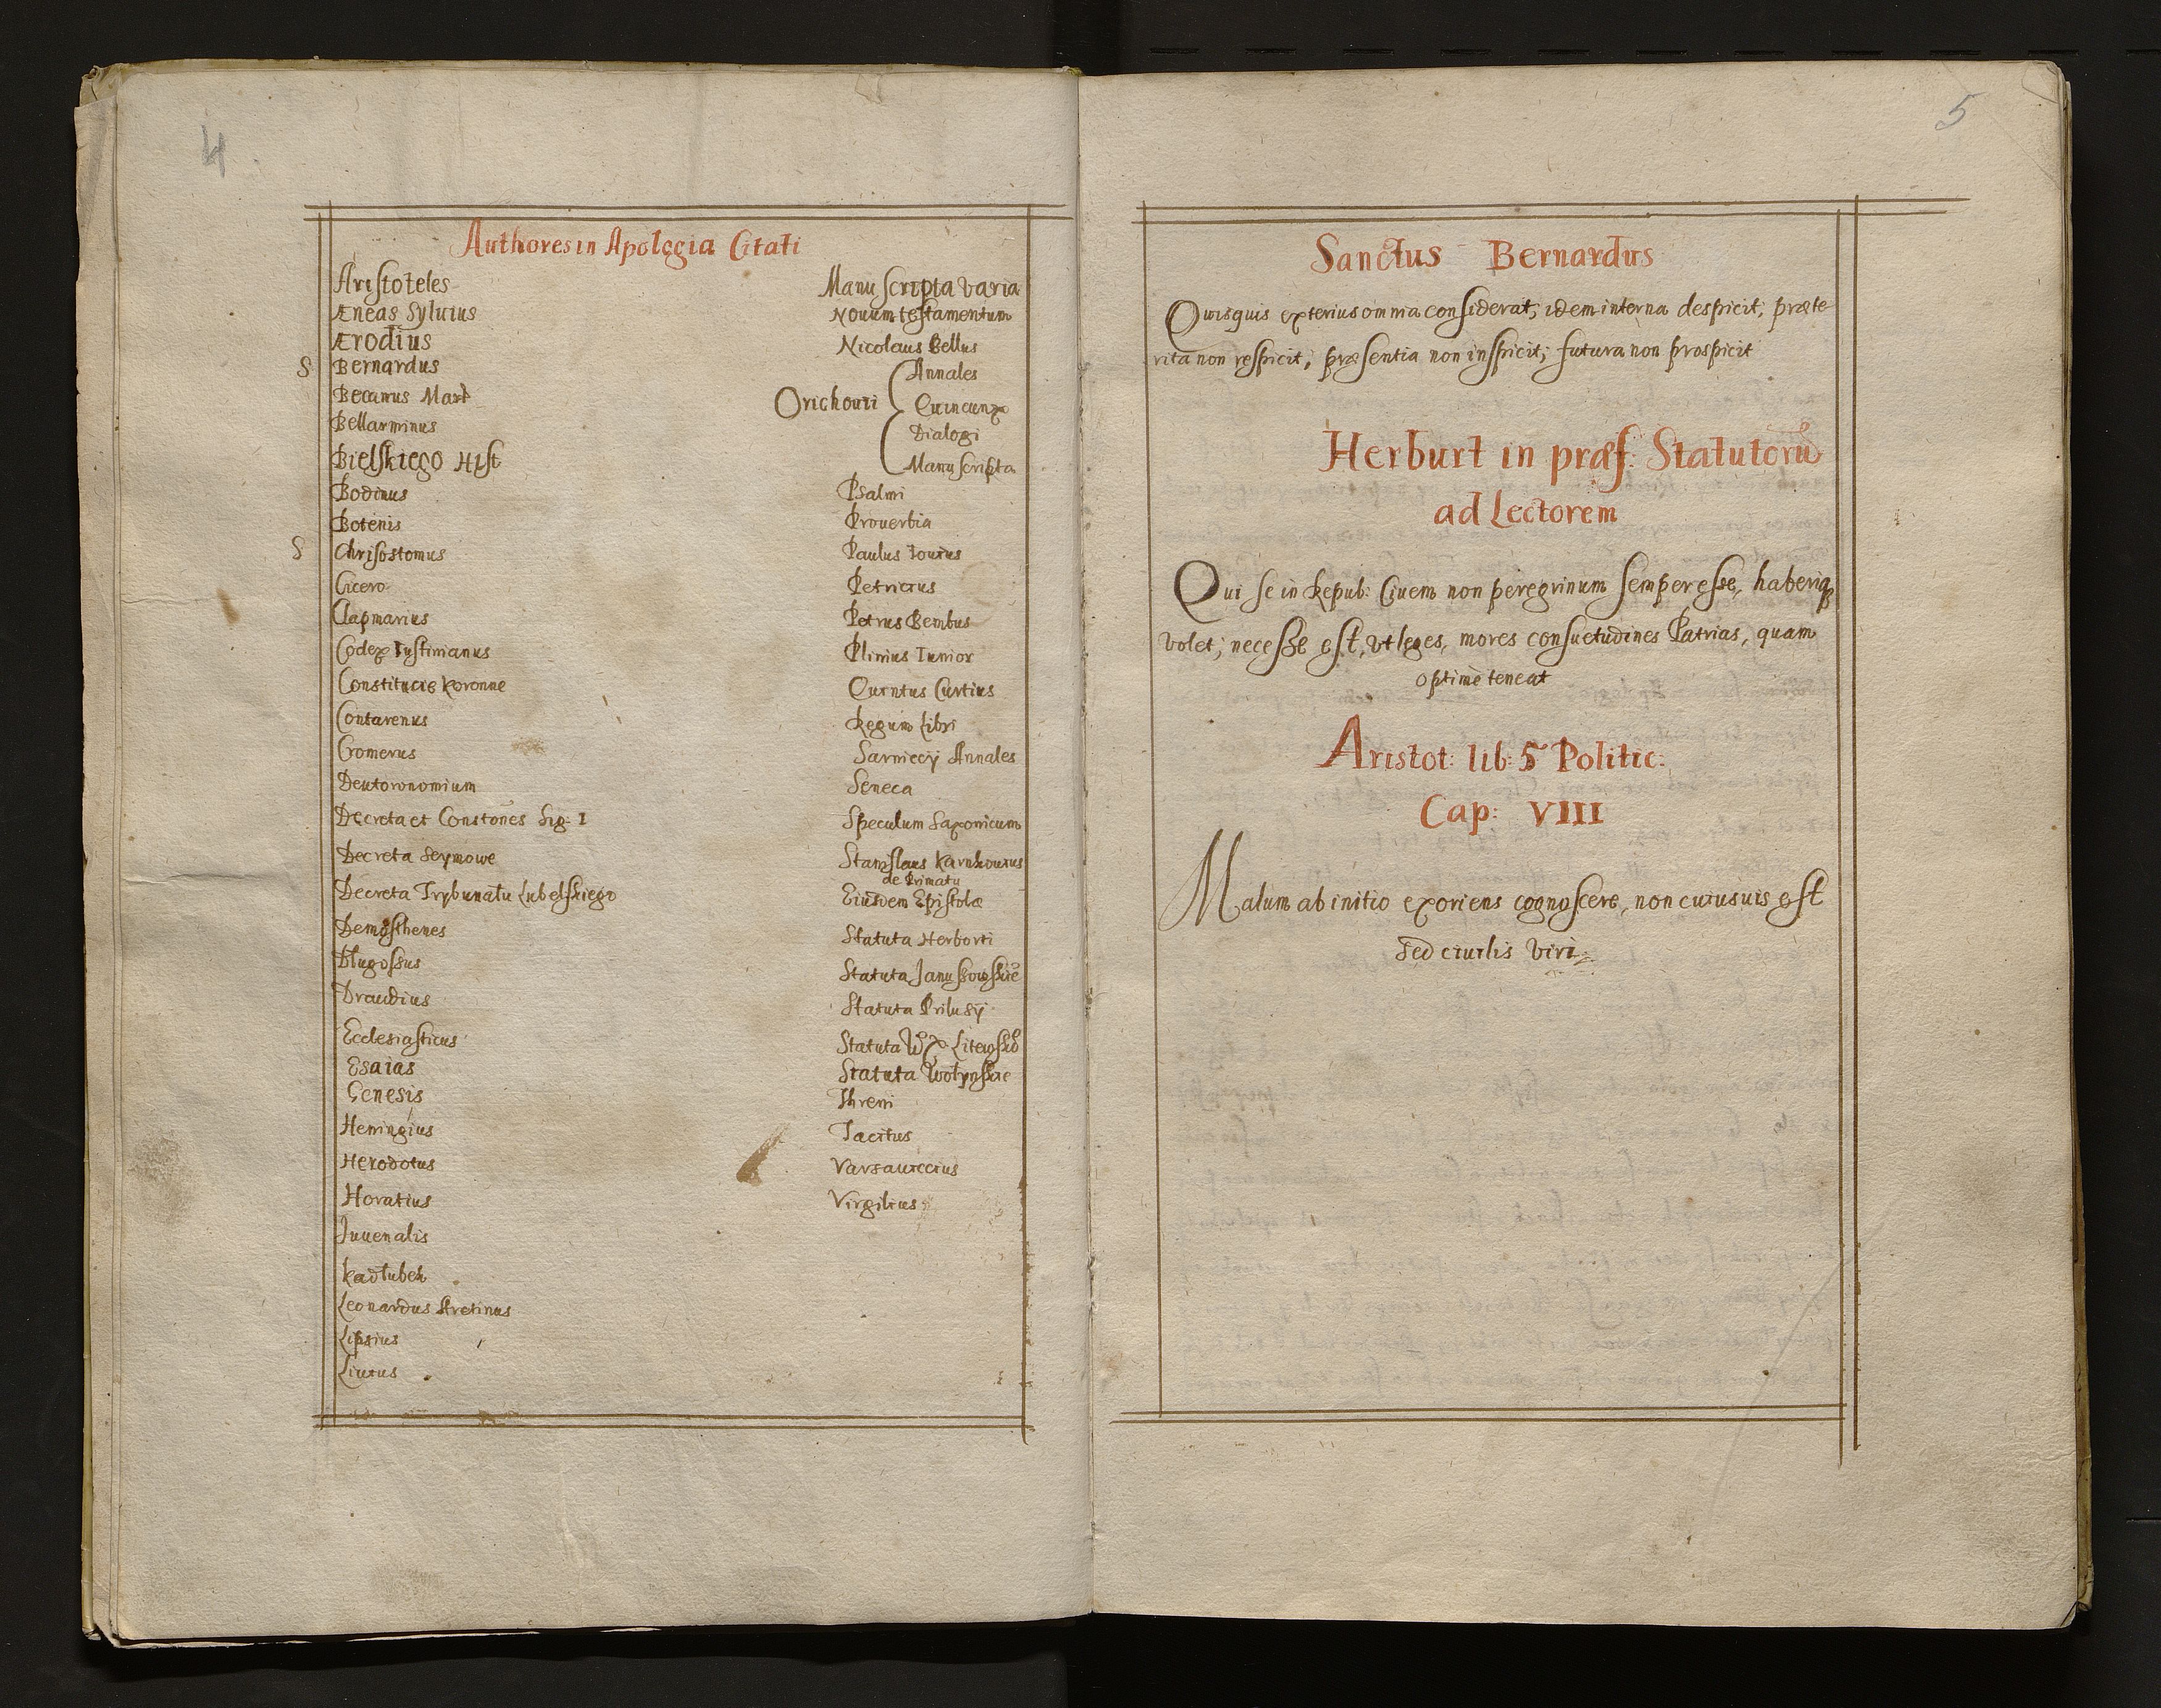 4
Authores in Apologia Citati
Aristoteles
Æneas Sylvius
Ærodius
S Bernardus
Becanus Mart
Bellarminus
Bielskiego Hist
Bodinus
Botenis
S Chrisostomus
Cicero
Clapmarius
Codex Iustinianus
Constitucie Koronne
Contarenus
Cromerus
Deutoronomium
Decreta et Constōnes Sig: I
Decreta Seymowe
Decreta Trybunału Lubelskiego
Demosthenes
Długossus
Draudius
Ecclesiasticus
Esaias
Genesis
Henningius
Herodotus
Horatius
Juuenalis
Kadłubek
Leonardus Aretinus
Lipsius
Liuius
Manuscripta varia
Nouum testamentum
Nicolaus Bellus
Orichouii
Annales
Quincunx
Dialogi
Manuscripta
Psalmi
Prouerbia
Paulus Iouius
Petricius
Petrus Bembus
Plinius Iunior
Quintus Curtius
Regum Libri
Sarniecÿ Annales
Seneca
Speculum Saxonicum
Stanislaus Karnkouius
de Primatu
Eiusdem Epistolæ
Statuta Herborti
Statuta Janussowskie
Statuta Prilusÿ
Statuta
Statuta Wołynskie
Threni
Tacitus
Varsauiccius
Virgilius
5
Sanctus Bernardus
Quisquis exterius omnia considerat; idem interna despicit, præte
rita non respicit; præsentia non inspicit; futura non prospicit
Herburt in præf: Statutorū
ad Lectorem
Qui se in Repub: Ciuem non peregrinum semper esse, haberiq;
volet; necesse est, vt leges, mores consuetudines Patrias, quam
optimè teneat
Aristot: lib: 5 Politic:
Cap: VIII
Malum ab initio exoriens cognoscere, non cuiusuis est
sed ciuilis viri